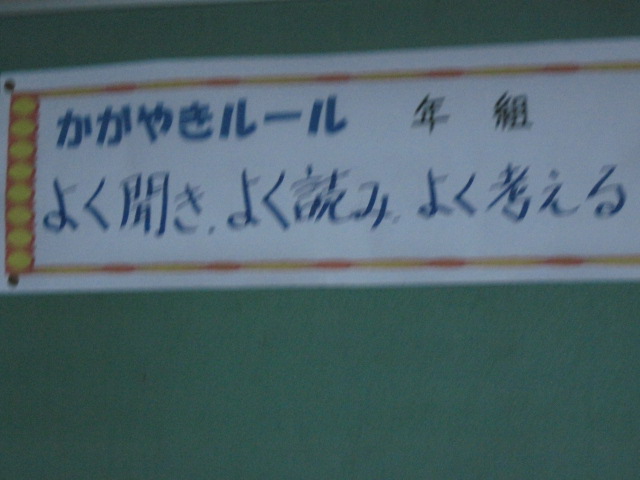 かがやきルール 年 組
よく聞き、よく読み、よく考える